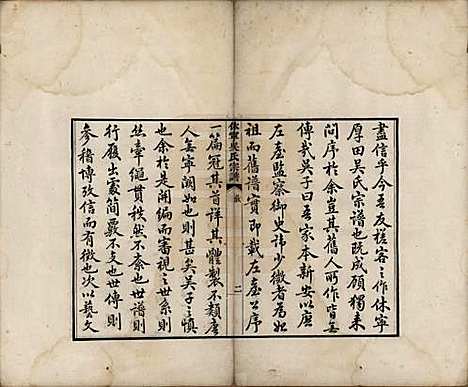 盡信乎今吾友槎客之作休寧
厚田吳氏宗譜也既成顧獨來
問序於余豈其舊人所作皆無
傳哉吳子曰吾家本新安以唐
左臺監察御史諱少微者為始
祖而舊譜實即載左臺公序
休寧吳氏宗譜
二
一篇冠其首詳其體製不類唐
人毋寧闕如也則甚矣吳子之慎
也余於是開編而審視之世系則
絲牽繩貫秩然不紊也世譜則
行履出處簡覈不支也世傳則
參稽博攷信而有徵也次以藝文